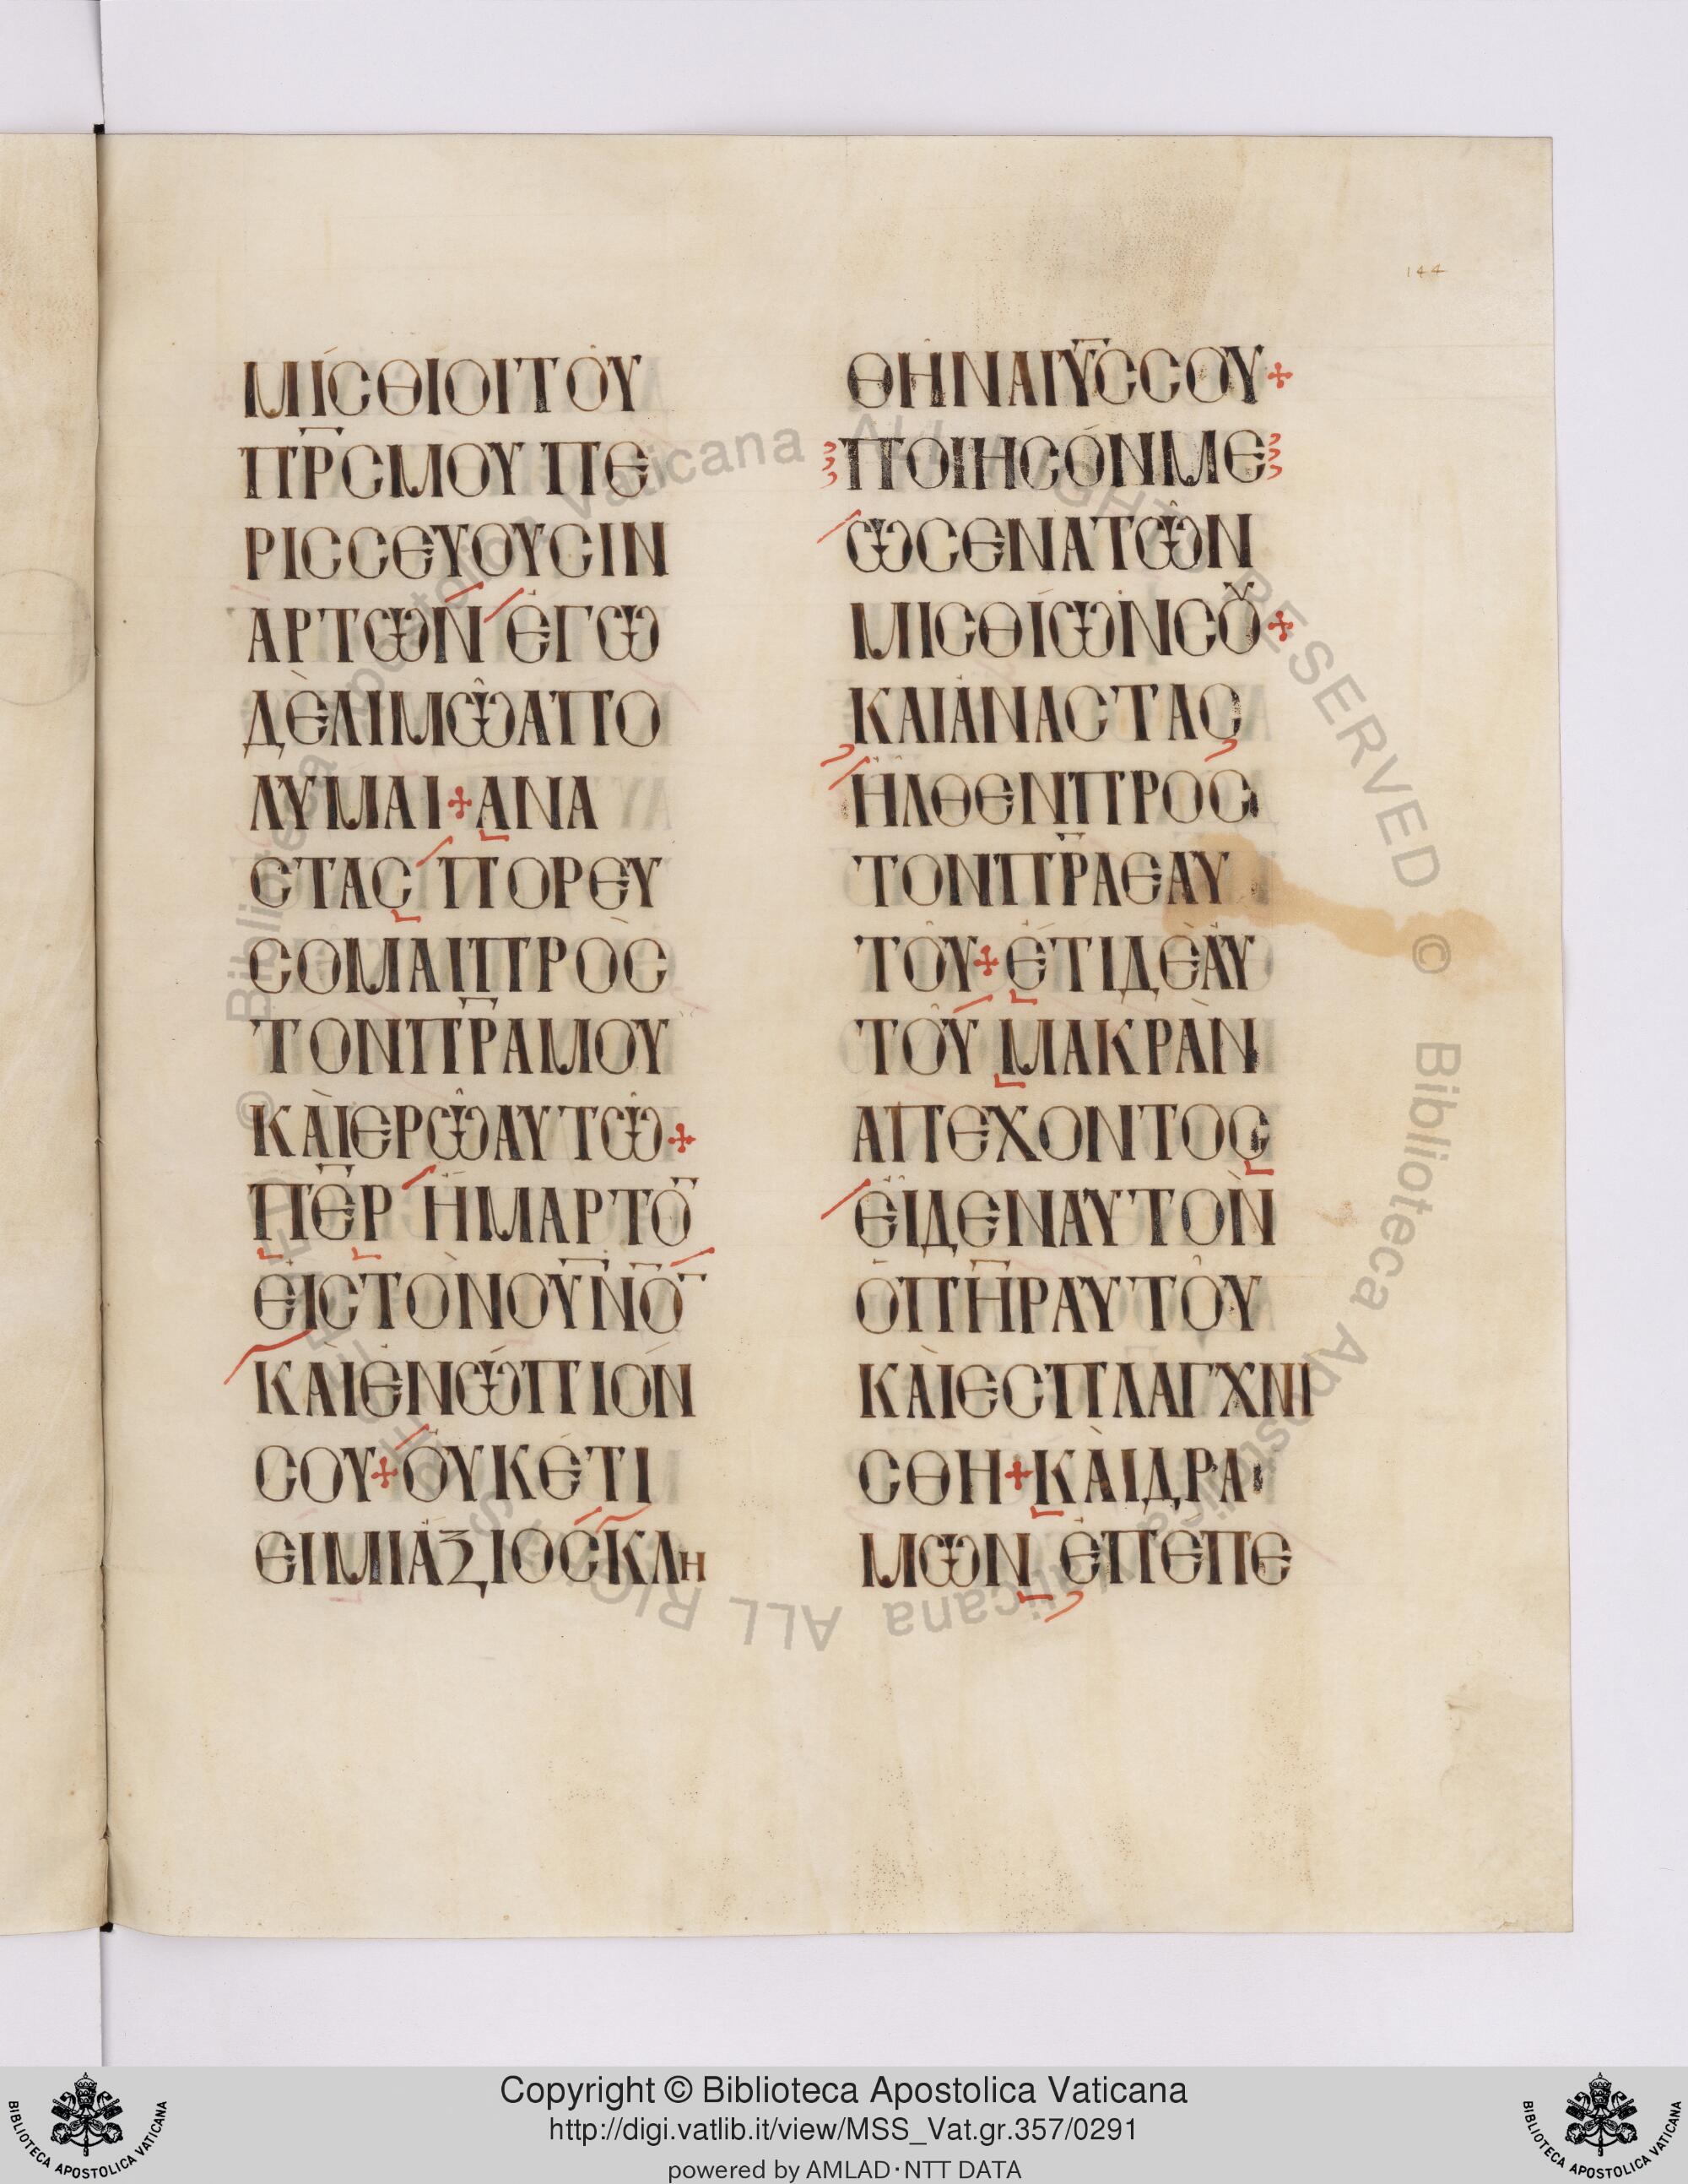 144
ΜΙСΘΙΟΙΤΟΥ
Π̅Ρ̅СΜΟΥ ΠΕ
ΡΙССΕΥΟΥСΙΝ
ΑΡΤΩΝ ΕΓΩ
ΔΕΛΙΜΩΑΠΟ
ΛΥΜΑΙ+ΑΝΑ
СΤΑС ΠΟΡΕΥ
СΟΜΑΙΠΡΟС
ΤΟΝΠ̅Ρ̅ΑΜΟΥ
ΚΑΙΕΡΩΑΥΤΩ+
ΠΕ̅Ρ ΗΜΑΡΤΟ̅
ΕΙСΤΟΝΟΥ̅Ν̅Ο̅
ΚΑΙΕΝΩΠΙΟΝ
СΟΥ+ΟΥΚΕΤΙ
ΕΙΜΙΑΞΙΟСΚΛΗ
ΘΗΝΑΙΥ̅С̅СΟΥ+
ΠΟΙΗСΟΝΜΕ
ΩСΕΝΑΤΩΝ
ΜΙСΘΙΩΝСΟΥ+
ΚΑΙΑΝΑСΤΑС
ΗΛΘΕΝΠΡΟС
ΤΟΝΠ̅Ρ̅ΑΕΑΥ
ΤΟΥ+ΕΤΙΔΕΑΥ
ΤΟΥ ΜΑΚΡΑΝ
ΑΠΕΧΟΝΤΟС
ΕΙΔΕΝΑΥΤΟΝ
ΟΠ̅Η̅ΡΑΥΤΟΥ
ΚΑΙΕСΠΛΑΓΧΝΙ
СΘΗ+ΚΑΙΔΡΑ
ΜΩΝ ΕΠΕΠΕ
© Biblioteca Apostolica Vaticana ALL RIGHTS RESERVED © Biblioteca Apostolica Vaticana ALL RIGHTS RESERVED
Copyright © Biblioteca Apostolica Vaticana
http://digi.vatlib.it/view/MSS_Vat.gr.357/0291
powered by AMLAD·NTT DATA
BIBLIOTECA APOSTOLICA VATICANA
BIBLIOTECA APOSTOLICA VATICANA